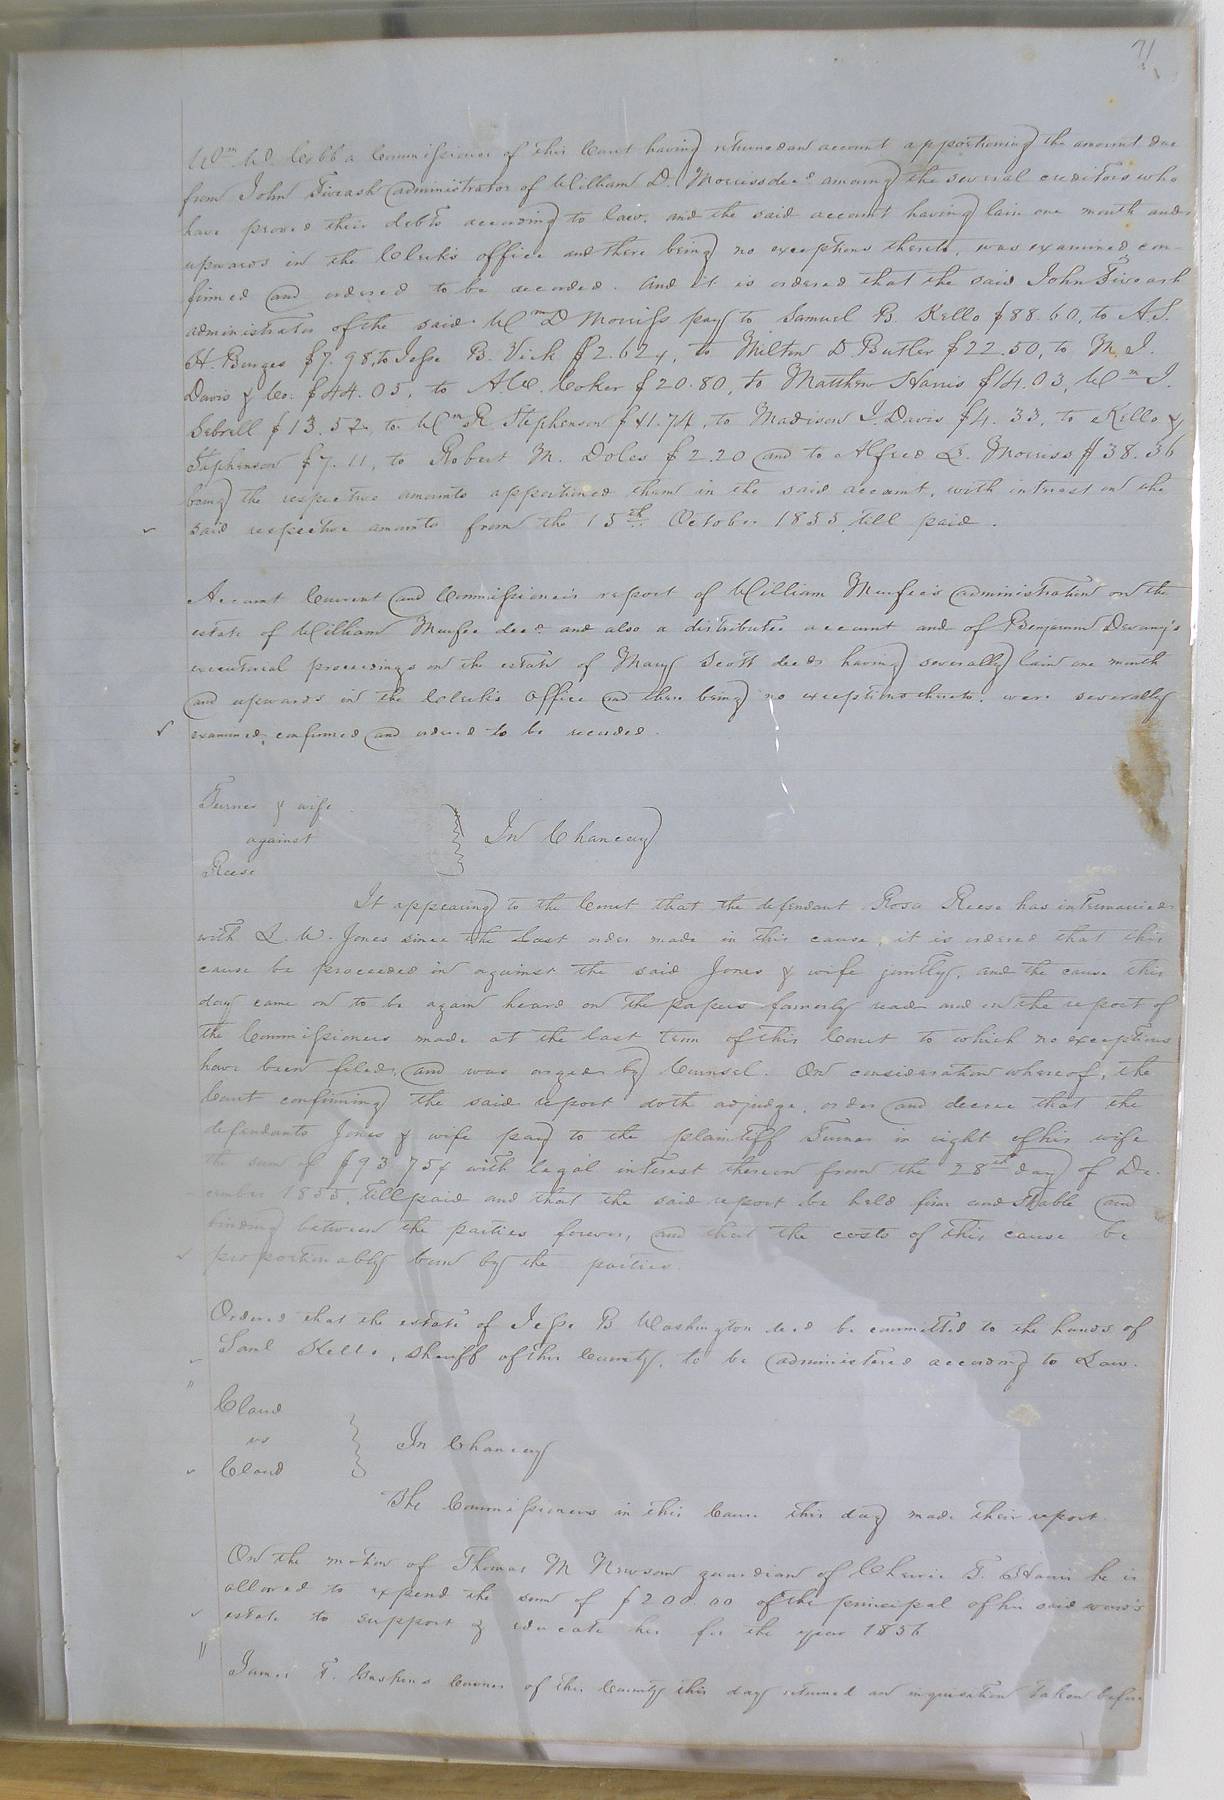 71
Wm. W. Cobb a Commissioner of this Court having returned an account apportioning the amount due
from John Fiveash administrator of William D. Morriss decd among the several creditors who
have proved their debts according to law, and the said account having lain one month and
upwards in the Clerk's office and there being no exceptions thereto, was examined con-
firmed and ordered to be recorded. And it is ordered that the said John Fiveash
administrator of the said Wm D Morriss pay to Samuel B. Kello $88.60, to A.S.
H. Burges $7.98, to Jesse B. Vick $2.62½, to Milton D. Butler $22.50, to M. J.
Davis & Co. $44.05, to Coker $20.80, to Matthew Harris $14.03, Wm J.
Sebrell $13.52, to Wm R Stephenson $41.74, to Madison J. Davis $4.33, to Kello &
Stephenson $7.11, to Robert M. Doles $2.20 and to Alfred L. Morriss $38.36
being the respective amounts apportioned them in the said account, with interest on the
said respective amounts from the 15th October 1855, till paid.
Account Current and Commissioner's report of William Murfee's administration on the
estate of William Murfee decd and also a distributee account and of Benjamin Devany's
executorial proceedings on the estate of Mary Scott decd having severally lain one month
and upwards in the Clerk's Office and there being no exceptions thereto, were severally
examined, confirmed and ordered to be recorded.
Turner & wife
against } In Chancery
Reese
It appearing to the Court that the defendant Rosa Reese has intermarried
with L. W. Jones since the last order made in this cause, it is ordered that this
cause be proceeded in against the said Jones & wife jointly, and the cause this
day came on to be again heard on the papers formerly read and on the report of
the Commissioners made at the last term of this Court to which no exceptions
have been filed, and was argued by Counsel. On consideration whereof, the
Court confirming the said report doth adjudge, order and decree that the
defendants Jones & wife pay to the plaintiff Turner in right of his wife
the sum of $93.75¢ with legal interest thereon from the 28th day of De-
cember 1855, till paid and that the said report be held firm and stable and
binding between the parties forever, and that the costs of this cause be
proportionably born by the parties.
Ordered that the estate of Jesse B Washington decd be committed to the hands of
Saml Kello, Sheriff of this County, to be administered according to Law.
Claud
vs } In Chancery
Claud
The Commissioners in this Cause this day made their report.
On the motion of Thomas M Newsom guardian of T. Harris he is
allowed to expend the sum of $200.00 of the principal of his said ward's
estate to support & educate her for the year 1856
James F. Gaskins Coroner of this County this day returned an inquisition taken before